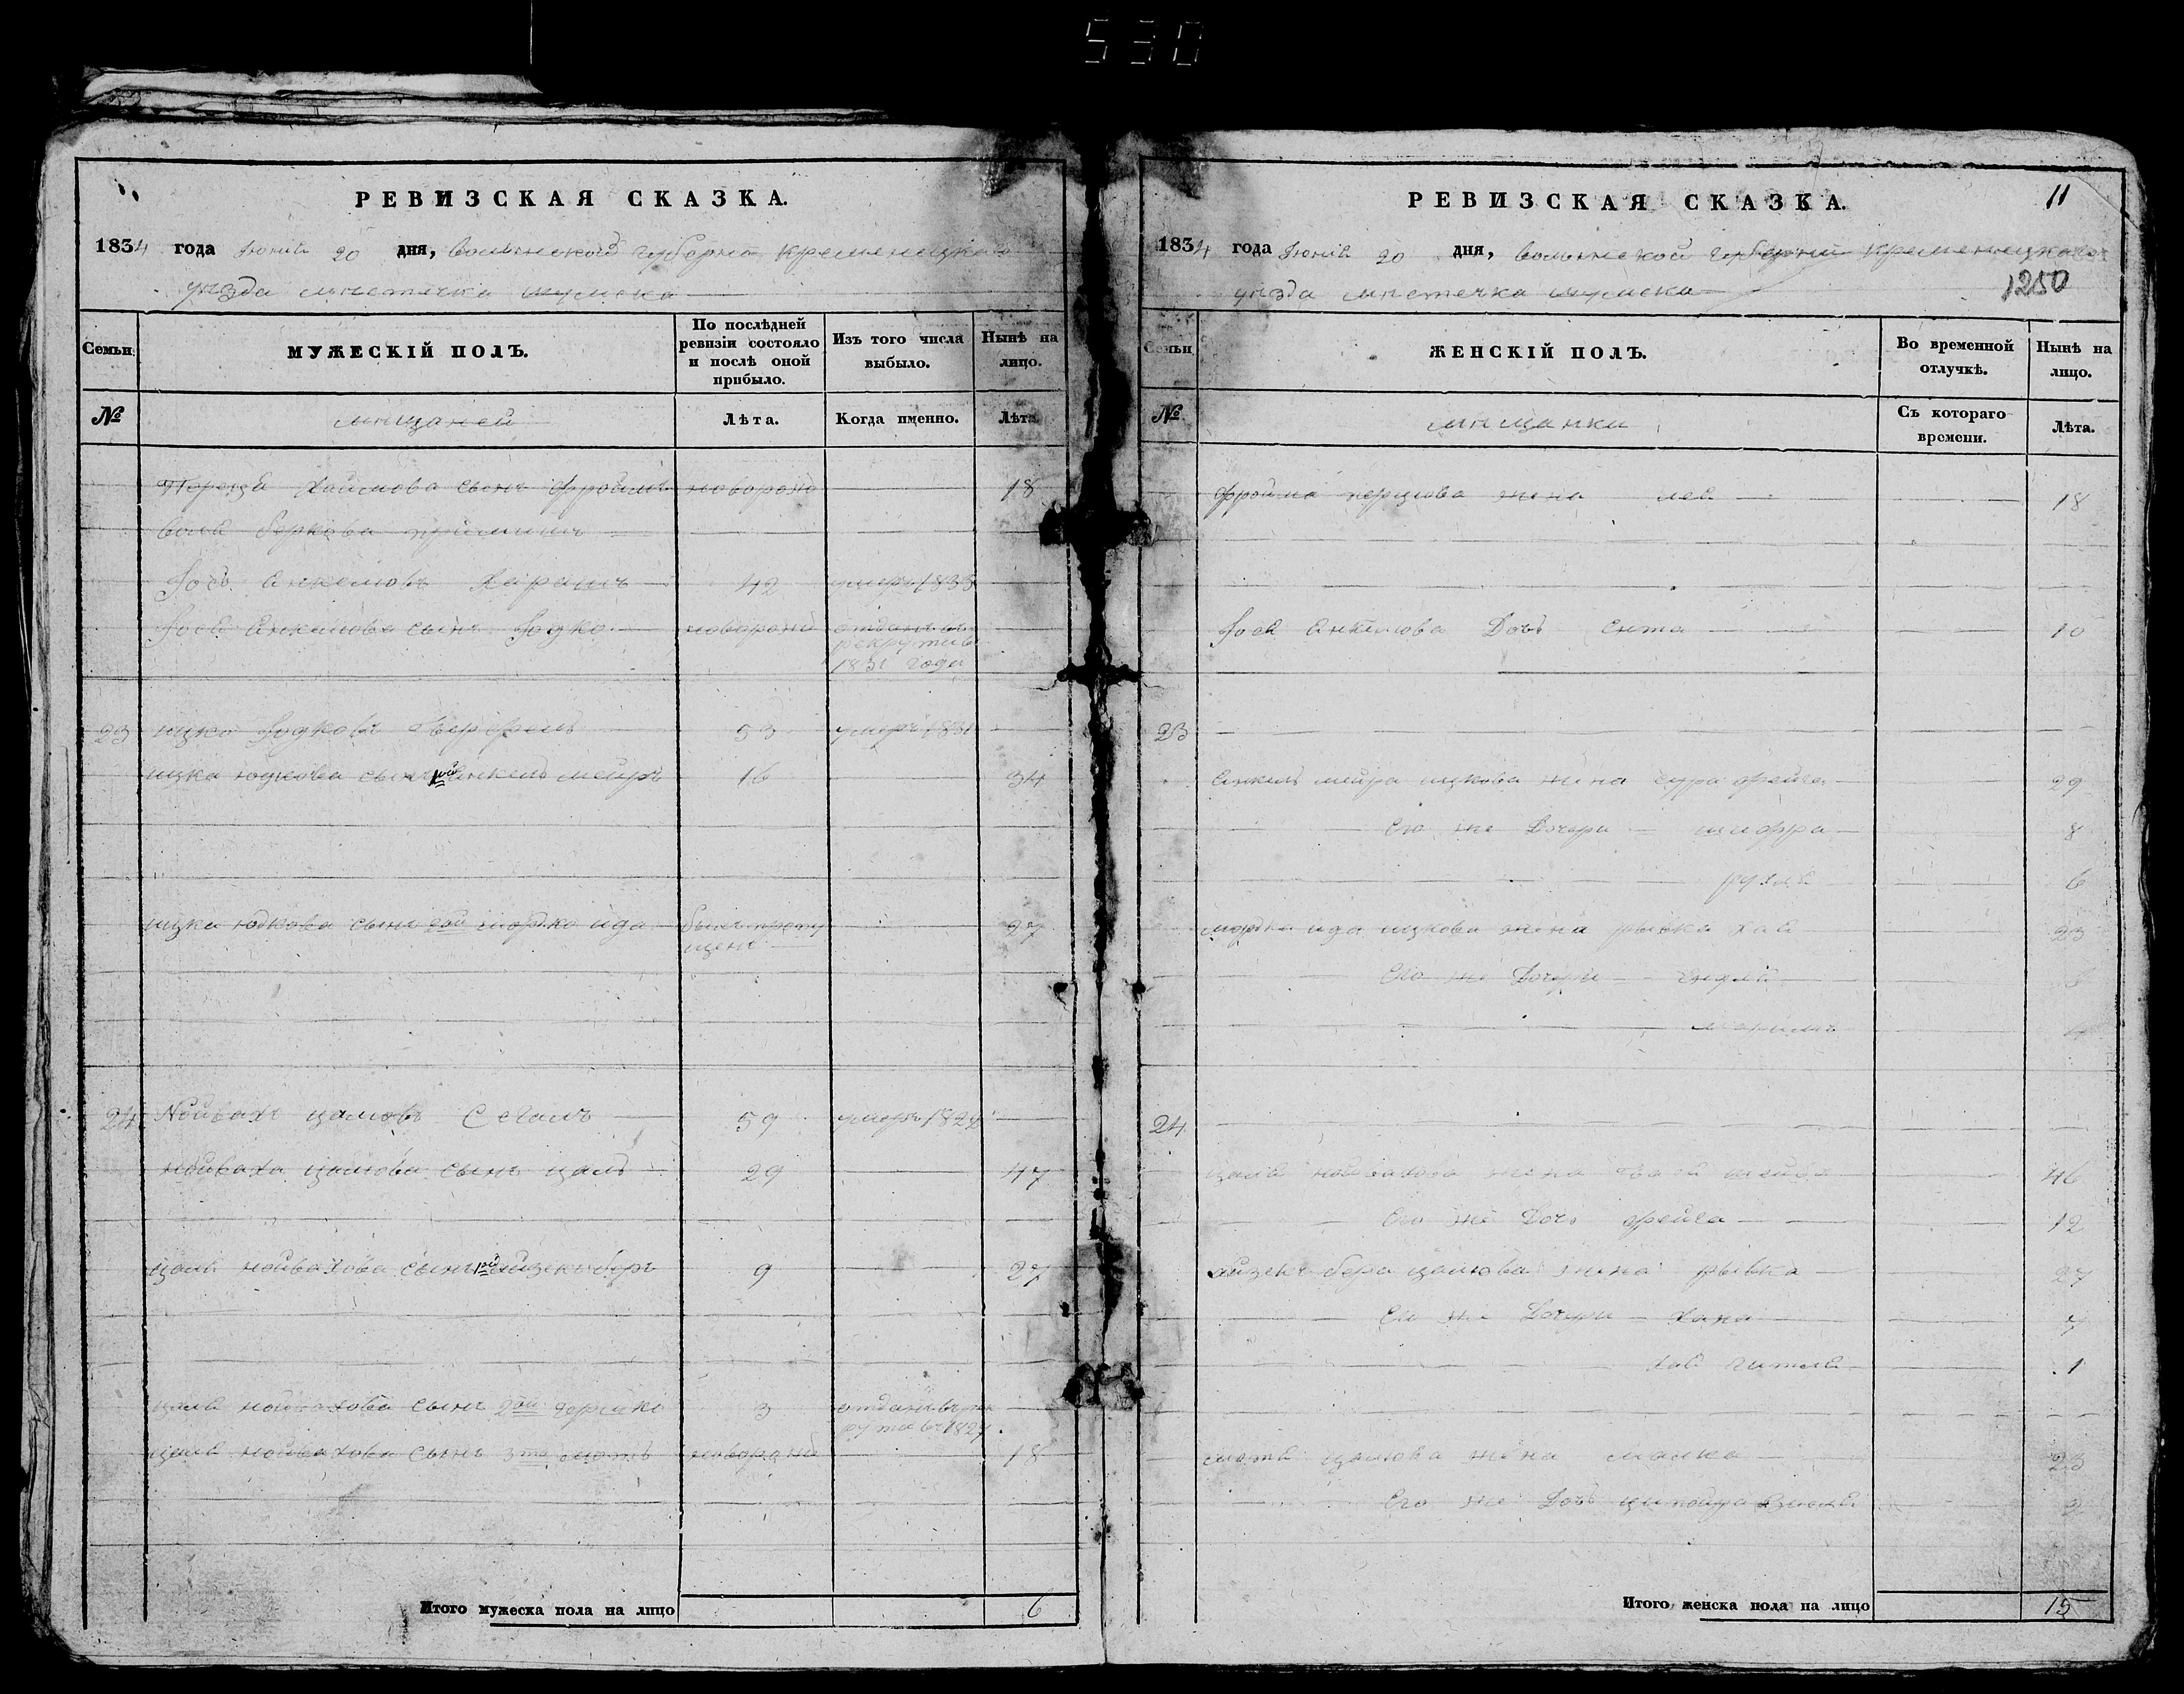 530
РЕВИЗСКАЯ СКАЗКА.
1834 года Іюня 20 дня, волынской губерніи кременецкаго
уѣзда мѣстечка шумска
Семьи.
МУЖЕСКІЙ ПОЛЪ.
По послѣдней ревизіи состояло и послѣ оной прибыло.
Изъ того числа выбыло.
Нынѣ на лицо.
№
мѣщаней
Лѣта.
Когда именно.
Лѣта.
Хаимова сынъ фроймъ новорожд 18
беркова
Іось Анкелювъ 42 умеръ 1833
Іося Анкелюва сынъ Іодко новорожд отданъ въ
рекруты въ
1831 года
23 ицко Іодковъ 53 умеръ 1831
ицка юдкова сынъ 1ой Анкель мейръ 16 34
ицка юдкова сынъ 2ой мордко ида былъ пропу 27
щенъ
24 Нойвахъ цалювъ Сегалъ 59 умеръ 1824
нойваха цалюва сынъ цаль 29 47
цаля нойвахова сынъ 1ой айзенъ беръ 9 27
цаля нойвахова сынъ 2ой гершко 3 отданъ въ рек
руты въ 1827.
цаля нойвахова сынъ 3то мотъ новорожд 18
Итого мужеска пола на лицо 6
РЕВИЗСКАЯ СКАЗКА. 11
1834 года Іюня 20 дня, волынской губерніи кременецкаго
уѣзда мѣстечка шумска 1250
Семьи.
ЖЕНСКІЙ ПОЛЪ.
Во временной отлучкѣ.
Нынѣ на лицо.
№
мѣщанки
Съ котораго времени.
Лѣта.
фройма перцова жена лея 18
Іося Анкелюва Дочь Ента 10
23
Анкель мейра ицкова жена сура фейга 29
Его же Дочери шифра 8
рухля 6
мордки ида ицкова жена рывка хая 23
Его же Дочери 6
4
24
цаля нойвахова жена 46
Его же Дочь фейга 12
айзенъ бера цалюва жена рывка 27
Его же Дочери хана 7
хая гитля 1
мотя цалюва жена малка 23
Его же Дочь ципойра 2
Итого женска пола на лицо 15